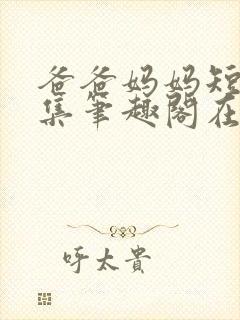 爸爸妈妈短
集筆趣閣在
呼太貴